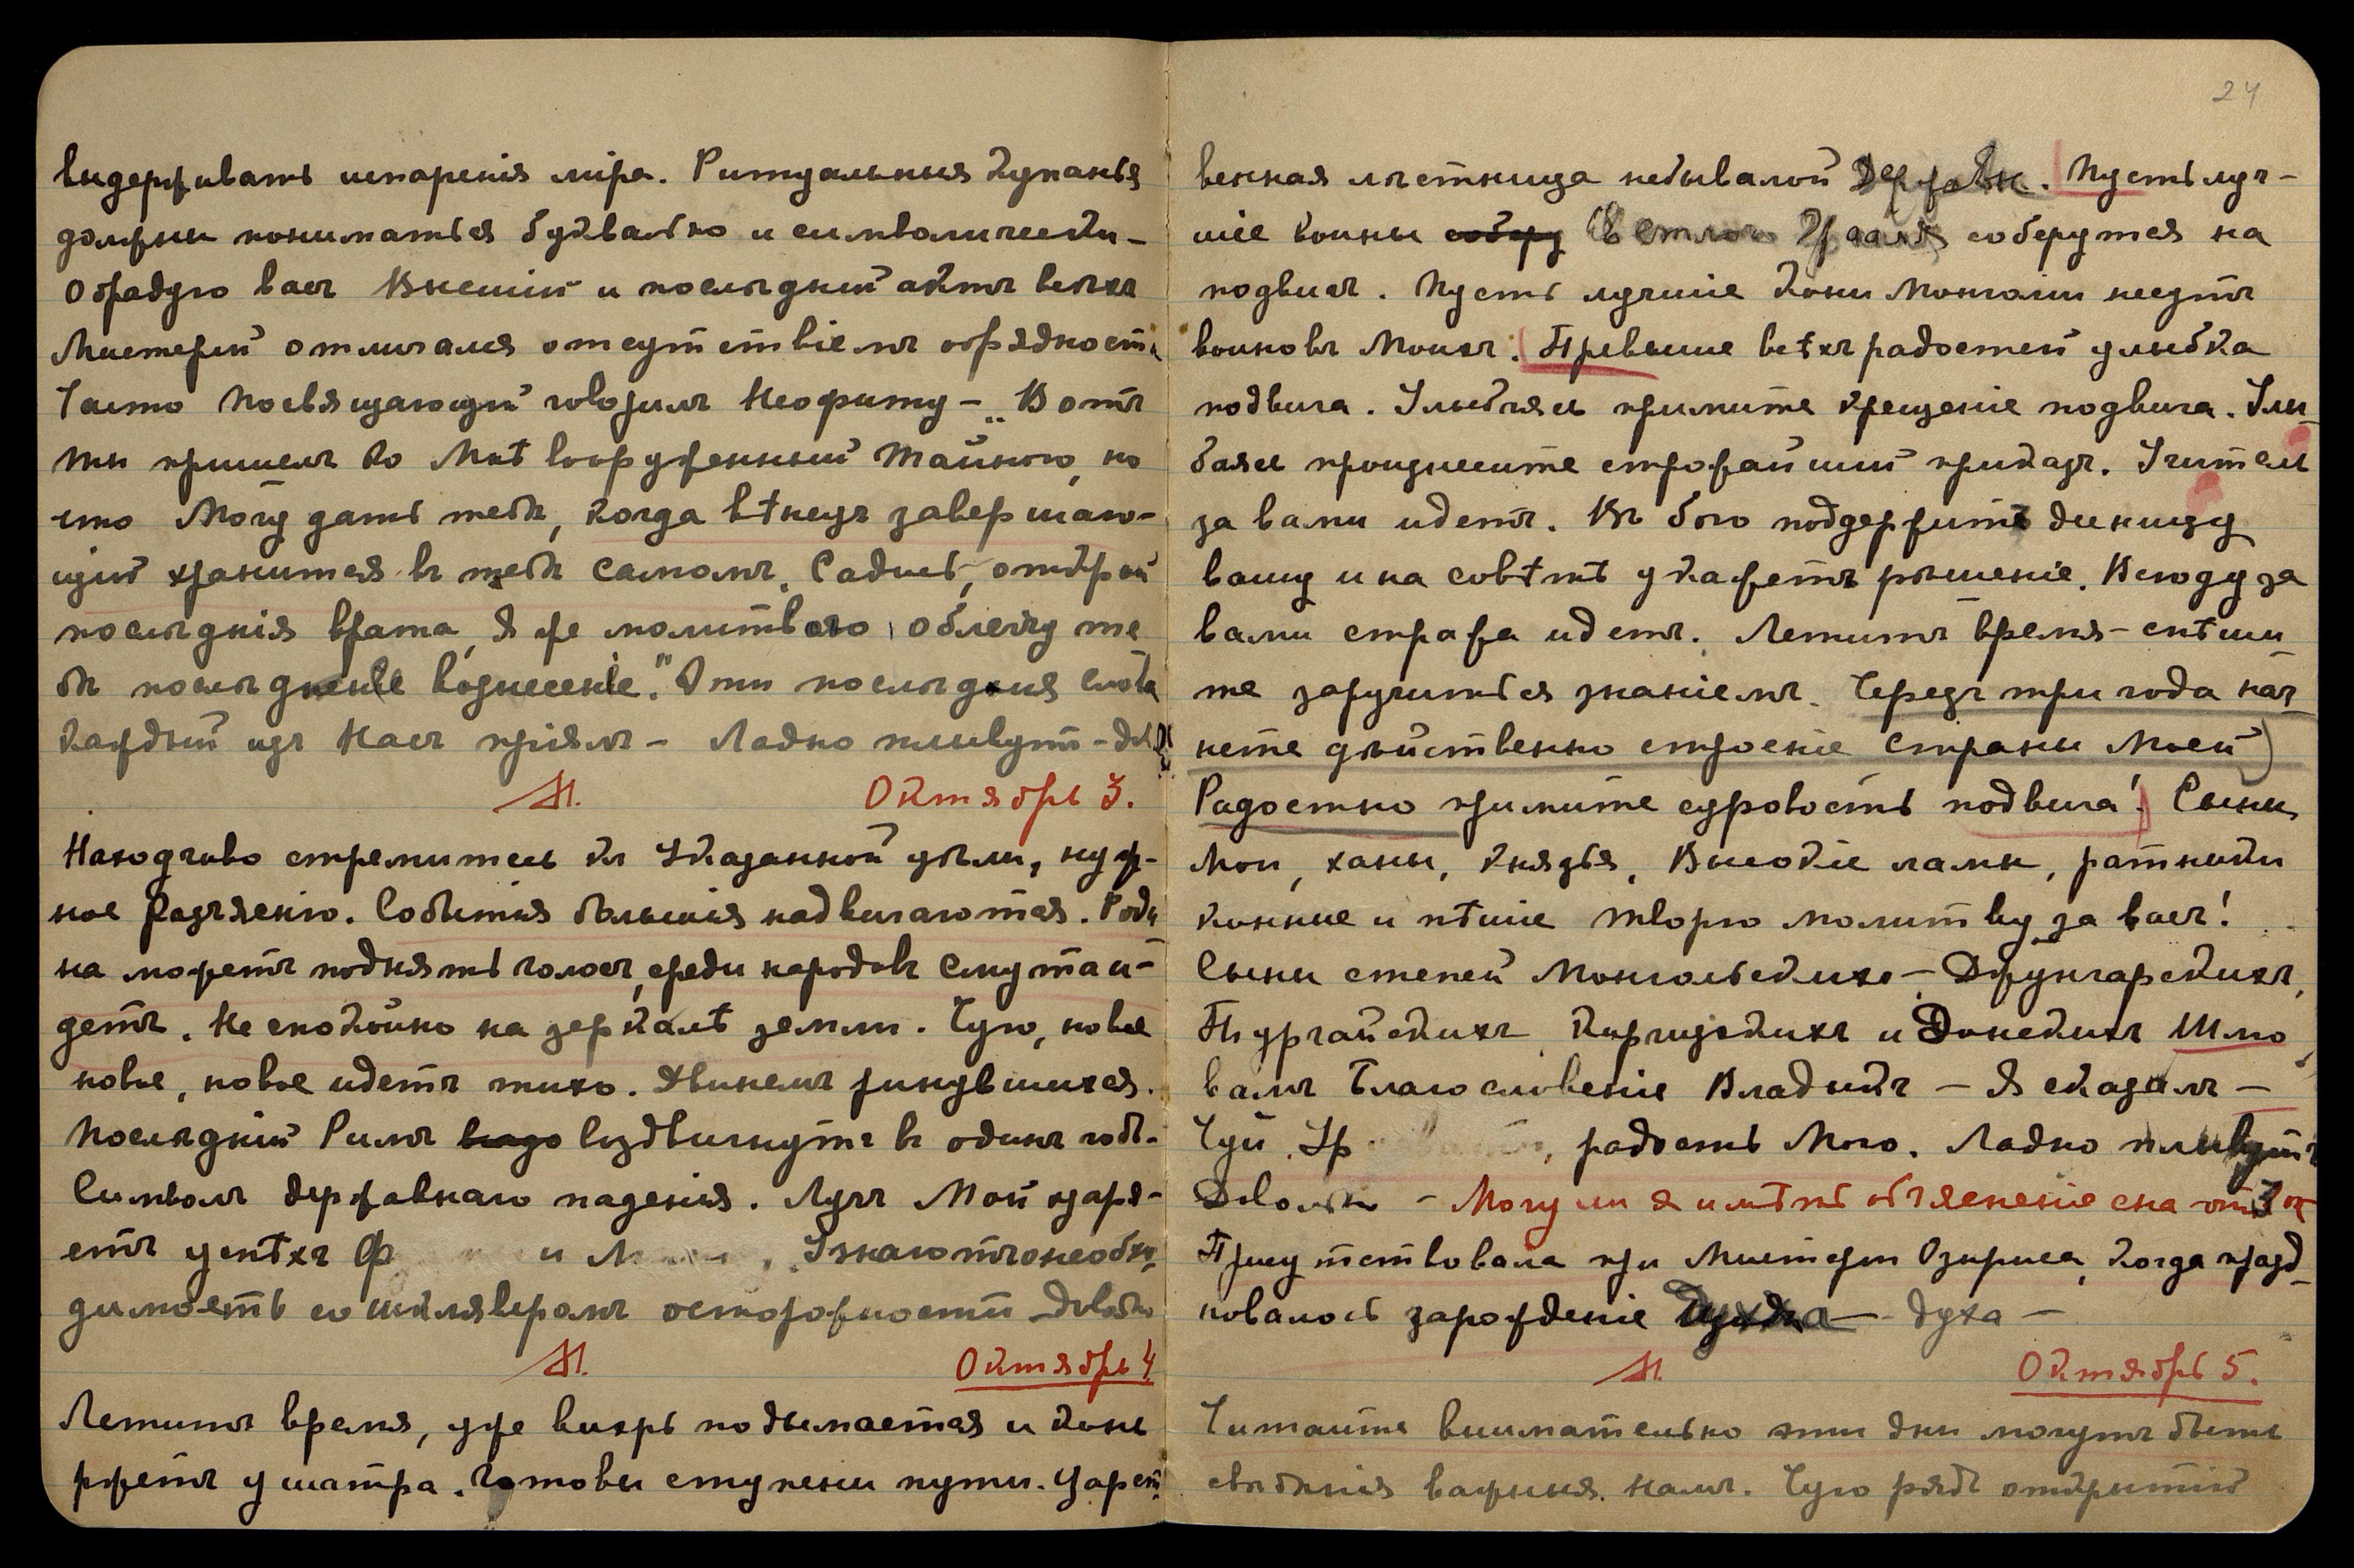 выдерживать испаренія міра. Ритуальныя купанья
должны пониматься буквально и символически –
Обрадую васъ Внешній и послѣдній актъ всѣхъ
Мистерій отличался отсутствіемъ обрядности
Часто Посвящающій говорилъ Неофиту – „Вотъ
ты пришелъ ко Мнѣ вооруженный тайною, но
что Могу дать тебѣ, когда вѣнецъ завершаю-
щій хранится въ тебѣ самомъ. Садись, открой
послѣднія врата, Я же молитвою облегчу те
бѣ послѣднее вознесеніе." Эти послѣднія слова
каждый изъ Насъ пріялъ – Ладно плывутъ –
М. Октябрь 3.
Находчиво стремитесь къ Указанной цѣли, нуж-
ное Разъясню. Событія большія надвигаются. Роди
на можетъ поднять голосъ, среди народовъ смута и-
детъ. Не спокойно на зеркалѣ земли. Чую, новое
новое, новое идетъ тихо. Двинемъ ринувшихся.
Послѣдній Римъ воздвигнутъ въ одинъ годъ.
Символъ державнаго паденія. Лучъ Мой озаря-
етъ успѣхъ Ф и М . Узнаютъ необхо
димость со шкляверомъ осторожности – довольно
М. Октябрь 4
Летитъ время, уже вихрь подымается и конь
ржетъ у шатра. Готовы ступени пути. Царст
24
венная лѣстница небывалой Державы. Пусть луч-
шіе воины собер Свѣтлого Грааля соберутся на
подвигъ. Пусть лучшіе кони Монголіи несутъ
воиновъ Моихъ. Превыше всѣхъ радостей улыбка
подвига. Улыбаясь примите крещеніе подвига. Улы
баясь произнесите строжайшій приказъ. Учитель
за вами идетъ. Въ бою поддержитъ десницу
вашу и на совѣтѣ укажетъ рѣшеніе. Всюду за
вами стража идетъ. Летитъ время – спѣши
те заручиться знаніемъ. Черезъ три года нач
нете дѣйственно строеніе Страны Моей
Радостно примите суровость подвига! Сыны
Мои, ханы, князья, Высокіе ламы, ратники
конные и пѣшіе творю молитву за васъ!
Сыны степей Монгольскихъ – Джунгарскихъ,
Тургайскихъ, Киргизскихъ и Донскихъ Шлю
вамъ Благословеніе Владыкъ – Я сказалъ –
Чуй Ур , радость Мою. Ладно плывутъ
Довольно – Могу ли я имѣть объясненіе сна отъ 3 ок
Присутствовала при Мистеріи Озириса, когда празд
новалось зарожденіе духа – духа –
М. Октябрь 5.
Читайте внимательно эти дни могутъ быть
свѣдѣнія важныя намъ. Чую рядъ открытій